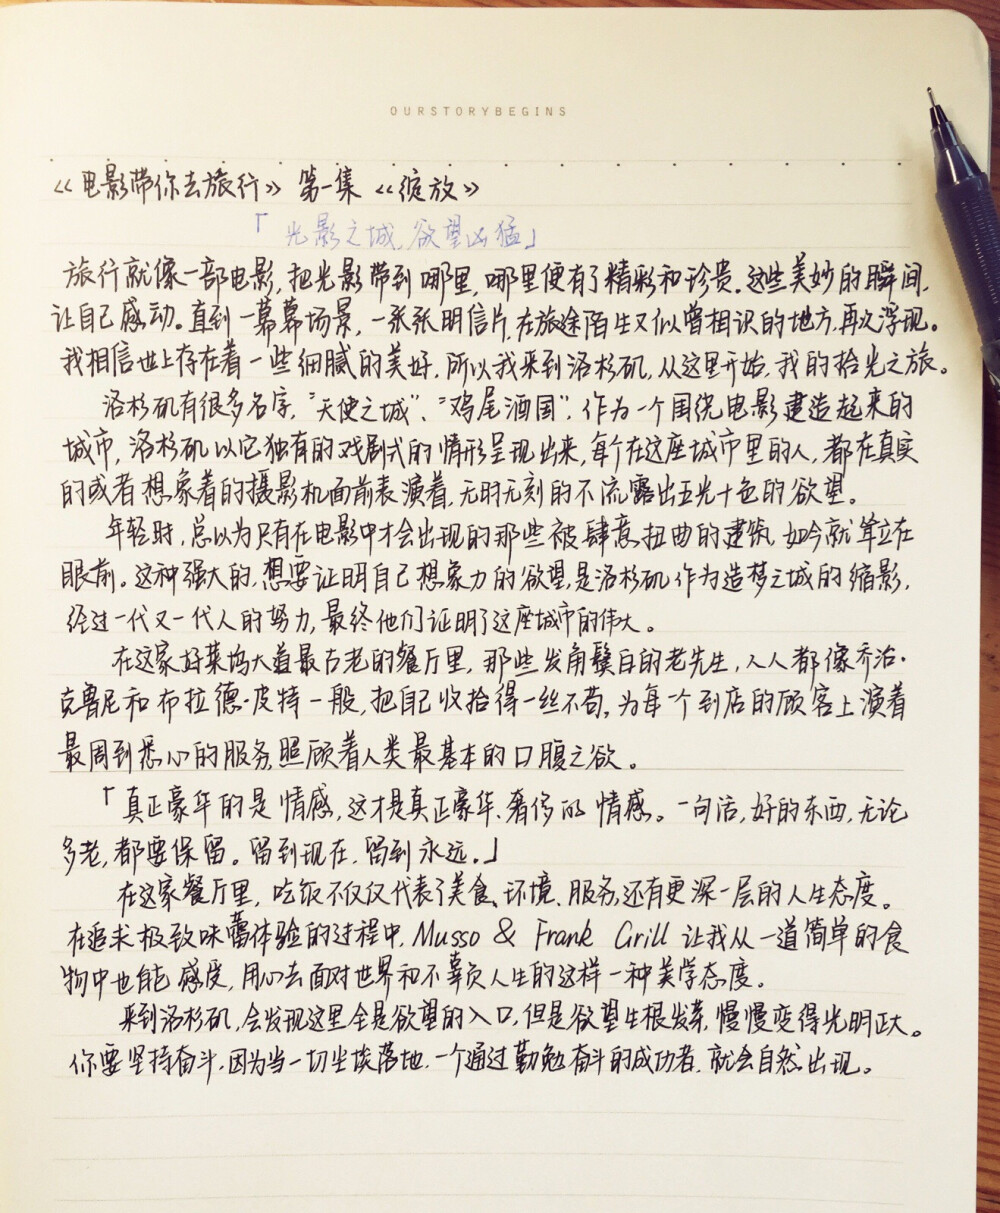 OURSTORYBEGINS
《电影带你去旅行》 第一集 《绽放》
「光影之城,欲望凶猛」
旅行就像一部电影,把光影带到哪里,哪里便有了精彩和珍贵.这些美妙的瞬间,
让自己感动。直到一幕幕场景,一张张明信片,在旅途陌生又似曾相识的地方,再次浮现。
我相信世上存在着一些细腻的美好,所以我来到洛杉矶,从这里开始,我的拾光之旅。
洛杉矶有很多名字,“天使之城”、“鸡尾酒国”.作为一个围绕电影建造起来的
城市,洛杉矶以它独有的戏剧式的情形呈现出来,每个在这座城市里的人,都在真实
的或者想象着的摄影机面前表演着,无时无刻的不流露出五光十色的欲望。
年轻时,总以为只有在电影中才会出现的那些被肆意扭曲的建筑,如今就耸立在
眼前。这种强大的,想要证明自己想象力的欲望,是洛杉矶作为造梦之城的缩影,
经过一代又一代人的努力,最终他们证明了这座城市的伟大。
在这家好莱坞大道最古老的餐厅里,那些发角鬓白的老先生,人人都像乔治·
克鲁尼和布拉德·皮特一般,把自己收拾得一丝不苟,为每个到店的顾客上演着
最周到悉心的服务,照顾着人类最基本的口腹之欲。
「真正豪华的是情感,这才是真正豪华、奢侈的情感。一句话,好的东西,无论
多老,都要保留。留到现在,留到永远。」
在这家餐厅里,吃饭不仅仅代表了美食、环境、服务,还有更深一层的人生态度。
在追求极致味蕾体验的过程中,Musso & Frank Grill 让我从一道简单的食
物中也能感受,用心去面对世界和不辜负人生的这样一种美学态度。
来到洛杉矶,会发现这里全是欲望的入口,但是欲望生根发芽,慢慢变得光明正大。
你要坚持奋斗,因为当一切尘埃落地,一个通过勤勉奋斗的成功者,就会自然出现。